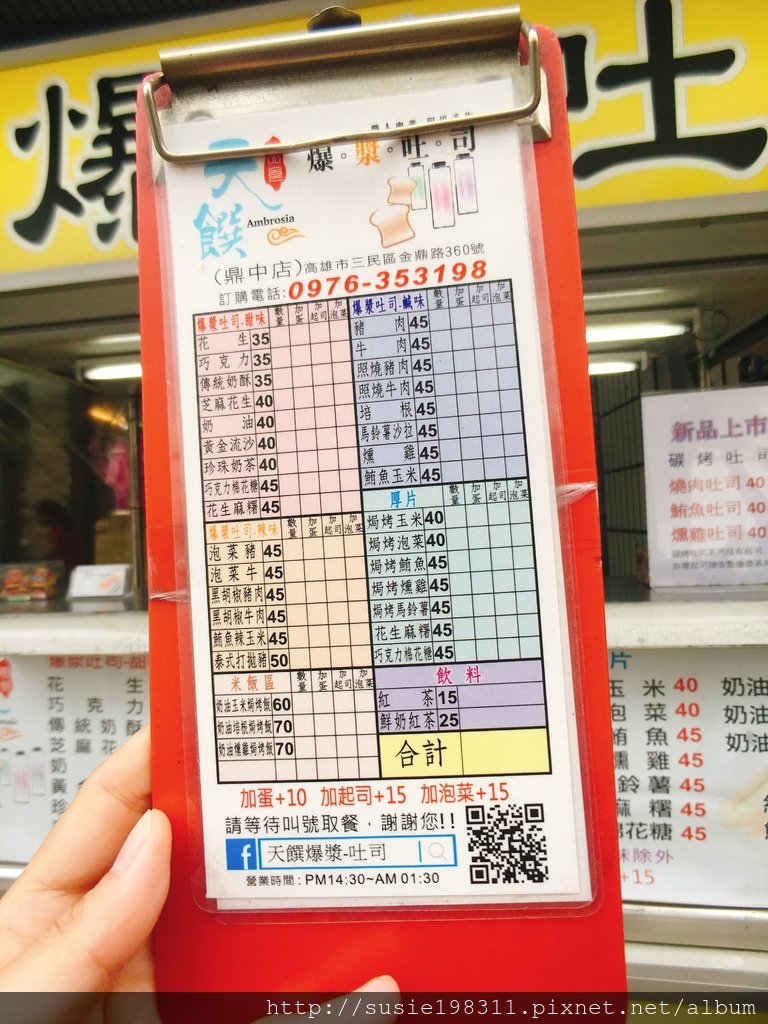 爆 吐
天饌
品皇
Ambrosia
爆漿吐司
(鼎中店)高雄市三民區金鼎路360號
訂購電話:0976-353198
爆漿吐司-甜味 數量 加蛋 加起司 加泡菜
花生 35
巧克力 35
傳統奶酥 35
芝麻花生 40
奶油 40
黃金流沙 40
珍珠奶茶 40
巧克力棉花糖 45
花生麻糬 45
爆漿吐司-辣味 數量 加蛋 加起司 加泡菜
泡菜豬 45
泡菜牛 45
黑胡椒豬肉 45
黑胡椒牛肉 45
鮪魚辣玉米 45
泰式打拋豬 50
米飯區 數量 加蛋 加起司 加泡菜
奶油玉米焗烤飯 60
奶油培根焗烤飯 70
奶油燻雞焗烤飯 70
爆漿吐司-鹹味 數量 加蛋 加起司 加泡菜
豬肉 45
牛肉 45
照燒豬肉 45
照燒牛肉 45
培根 45
馬鈴薯沙拉 45
燻雞 45
鮪魚玉米 45
厚片 數量 加蛋 加起司 加泡菜
焗烤玉米 40
焗烤泡菜 40
焗烤鮪魚 45
焗烤燻雞 45
焗烤馬鈴薯 45
花生麻糬 45
巧克力棉花糖 45
飲料
紅茶 15
鮮奶紅茶 25
合計
加蛋+10 加起司+15 加泡菜+15
請等待叫號取餐,謝謝您!!
f 天饌爆漿-吐司
營業時間:PM14:30~AM 01:30
新品上市
碳烤吐司
燒肉吐司 40
鮪魚吐司 40
燻雞吐司 40
爆漿吐司-甜
花生
巧克力
傳統奶酥
芝麻花
奶
黃金
珍
片
玉米 40
泡菜 40
鮪魚 45
燻雞 45
鈴薯 45
麻糬 45
棉花糖 45
味除外
+15
奶油
奶油
奶油
http://susie198311.pixnet.net/album